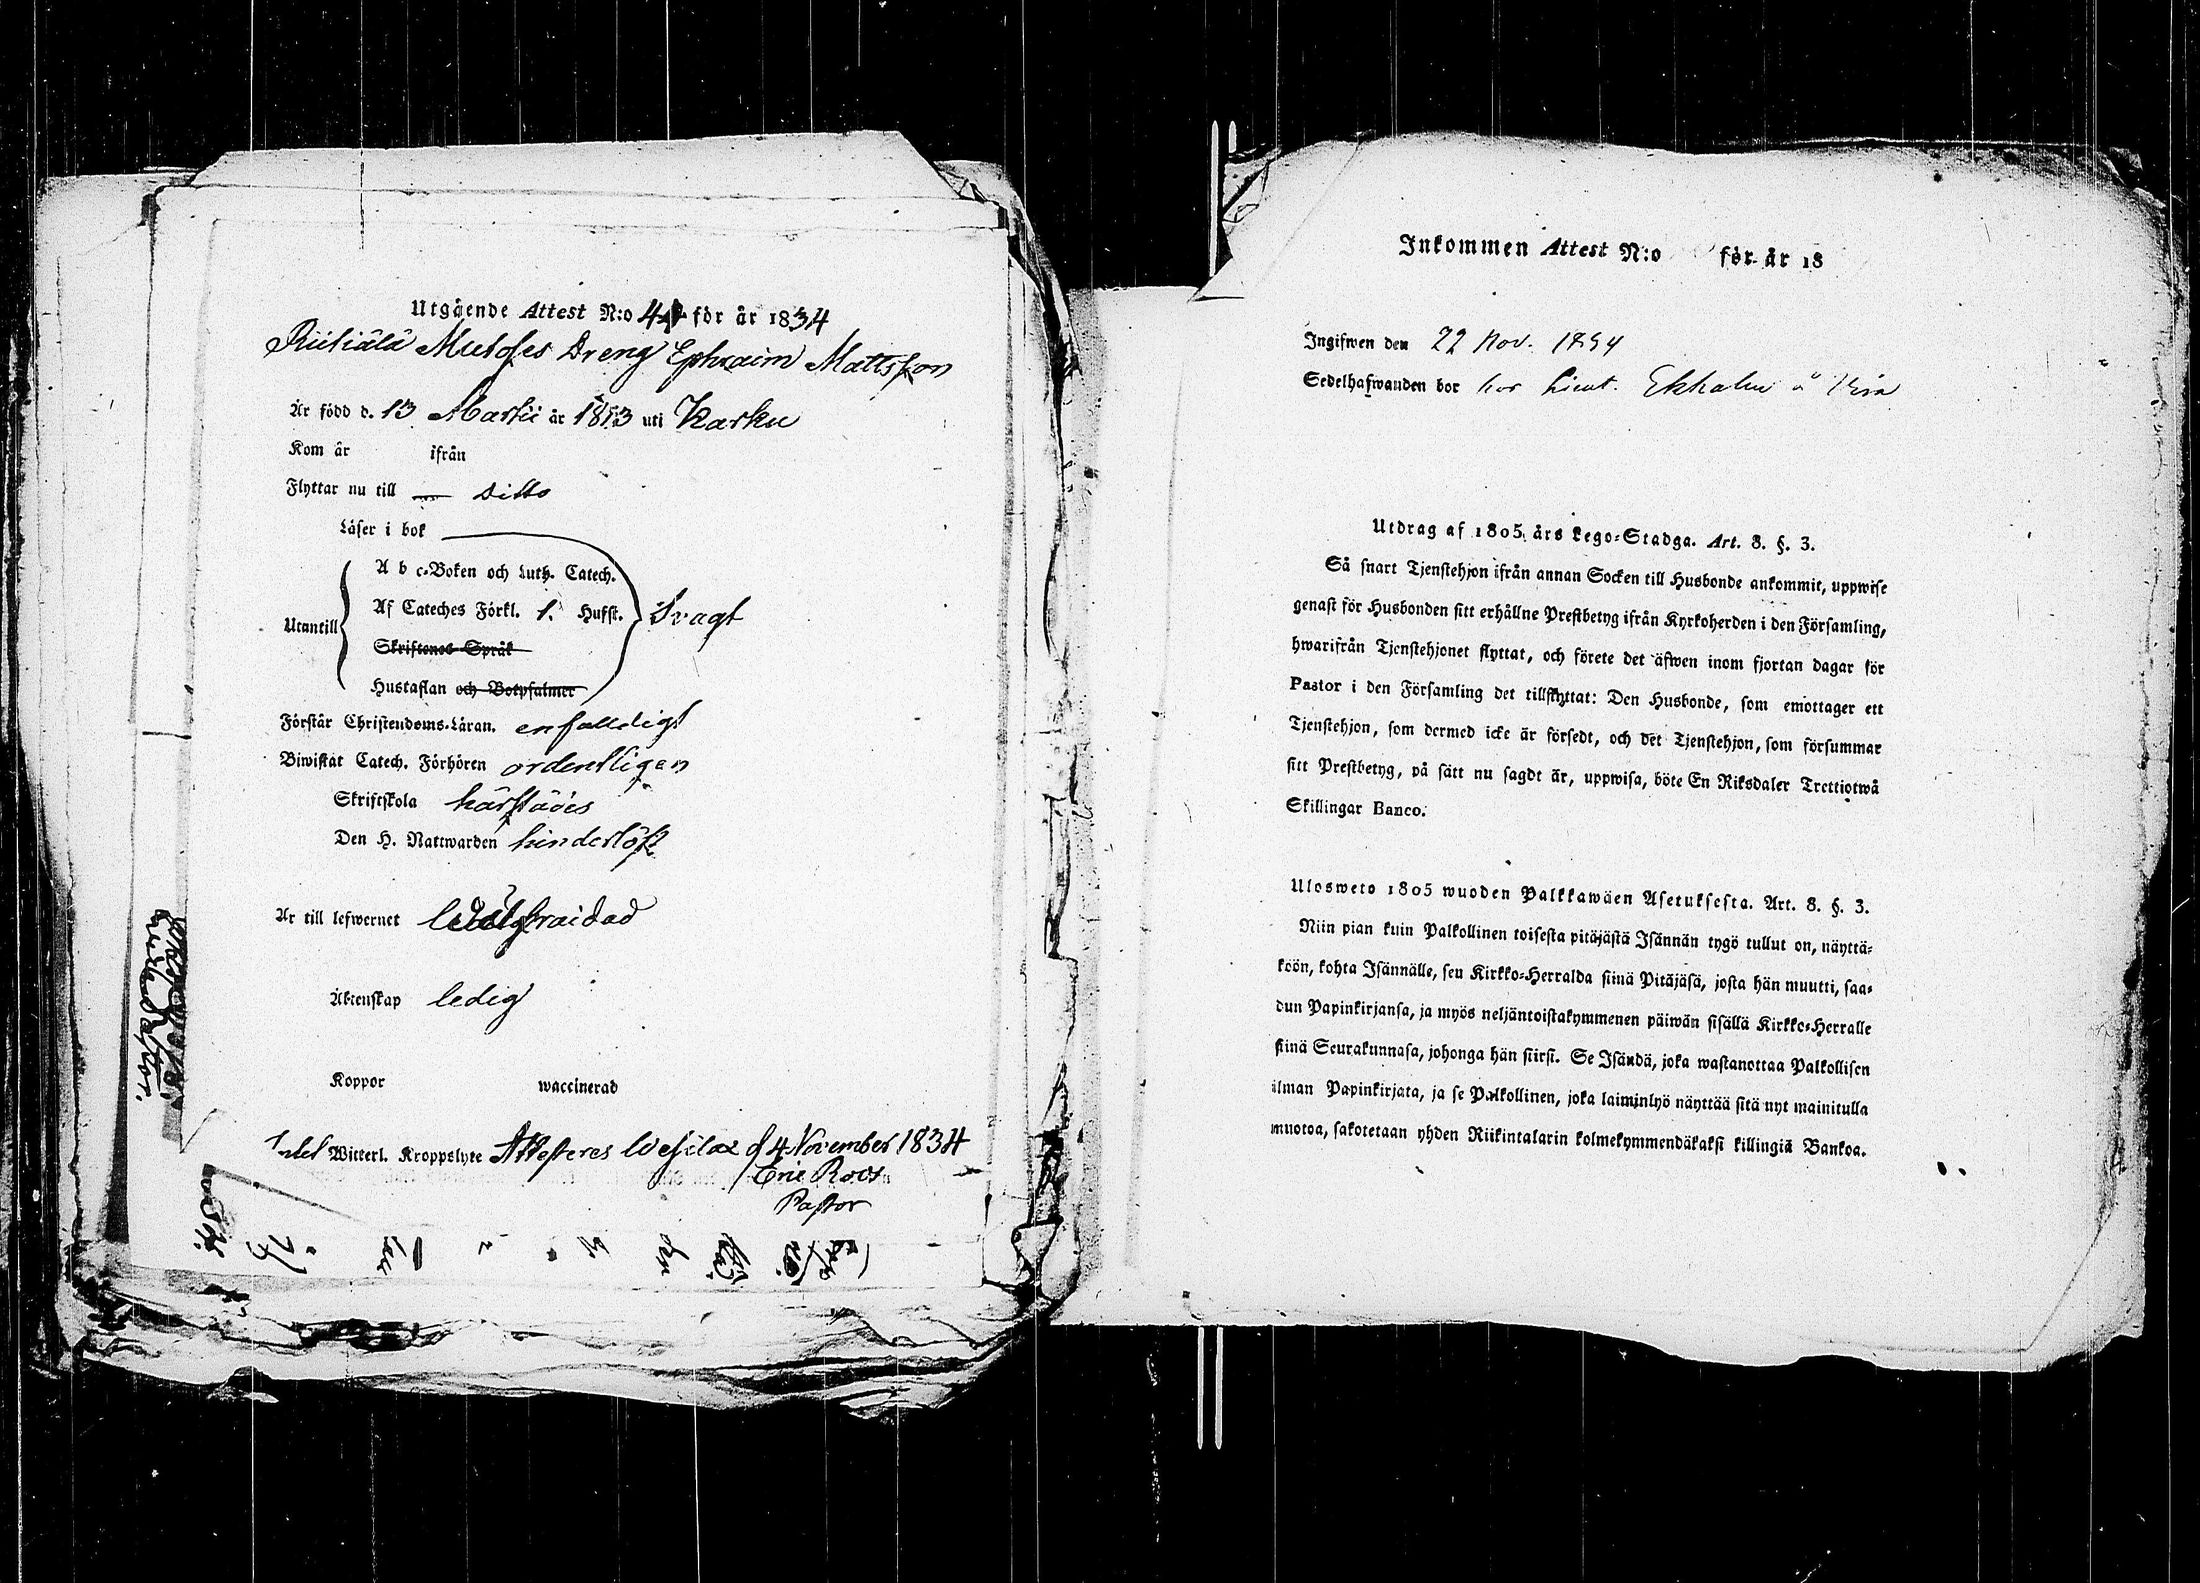 Utgående Attest N:o 4 för år 1834
Mutoses Dreng Ephraim Mattsson
Är född d. 13 Martii år 1813 uti Karku
Kom år ifrån
Flyttar nu till — ditto
Läser i bok
A b c-Boken och Luth. Catech.
Utantill Af Cateches Förkl. 1. Hufst. Svagt
Skriftenes Språk
Hustaflan och Botpsalmer
Förstår Christendoms-Läran. enfalldigt
Biwistat Catech. Förhören ordentligen
Skriftskola härstädes
Den H. Nattwarden hinderlöst
Är till lefwernet
Äktenskap ledig
Koppor waccinerad
Witterl. Kroppslyte Attesteres Wesilax d 4 November 1834
Eric Roos
Pastor
Inkommen Attest N:o för år 18
Ingifwen den 22 Nov. 1834
Sedelhafwanden bor hos Lieut. Ekholm å
Utdrag af 1805 års Lego-Stadga. Art. 8. §. 3.
Så snart Tjenstehjon ifrån annan Socken till Husbonde ankommit, uppwise
genast för Husbonden sitt erhållne Prestbetyg ifrån Kyrkoherden i den Församling,
hwarifrån Tjenstehjonet flyttat, och förete det äfwen inom fjortan dagar för
Pastor i den Församling det tillflyttat: Den Husbonde, som emottager ett
Tjenstehjon, som dermed icke är försedt, och det Tjenstehjon, som försummar
sitt Prestbetyg, på sätt nu sagdt är, uppwisa, böte En Riksdaler Trettiotwå
Skillingar Banco.
Ulosweto 1805 wuoden Palkkawäen Asetuksesta. Art. 8. §. 3.
Niin pian kuin Palkollinen toisesta pitäjästä Isännän tygö tullut on, näyttä-
köön, kohta Isännälle, sen Kirkko-Herralda siinä Pitäjäsä, josta hän muutti, saa-
dun Papinkirjansa, ja myös neljäntoistakymmenen päiwän sisällä Kirkko-Herralle
siinä Seurakunnasa, johonga hän siirsi. Se Isändä, joka wastanottaa Palkollisen
ilman Papinkirjata, ja se Palkollinen, joka laiminlyö näyttää sitä nyt mainitulla
muotoa, sakotetaan yhden Riikintalarin kolmekymmendäkaksi killingiä Bankoa.